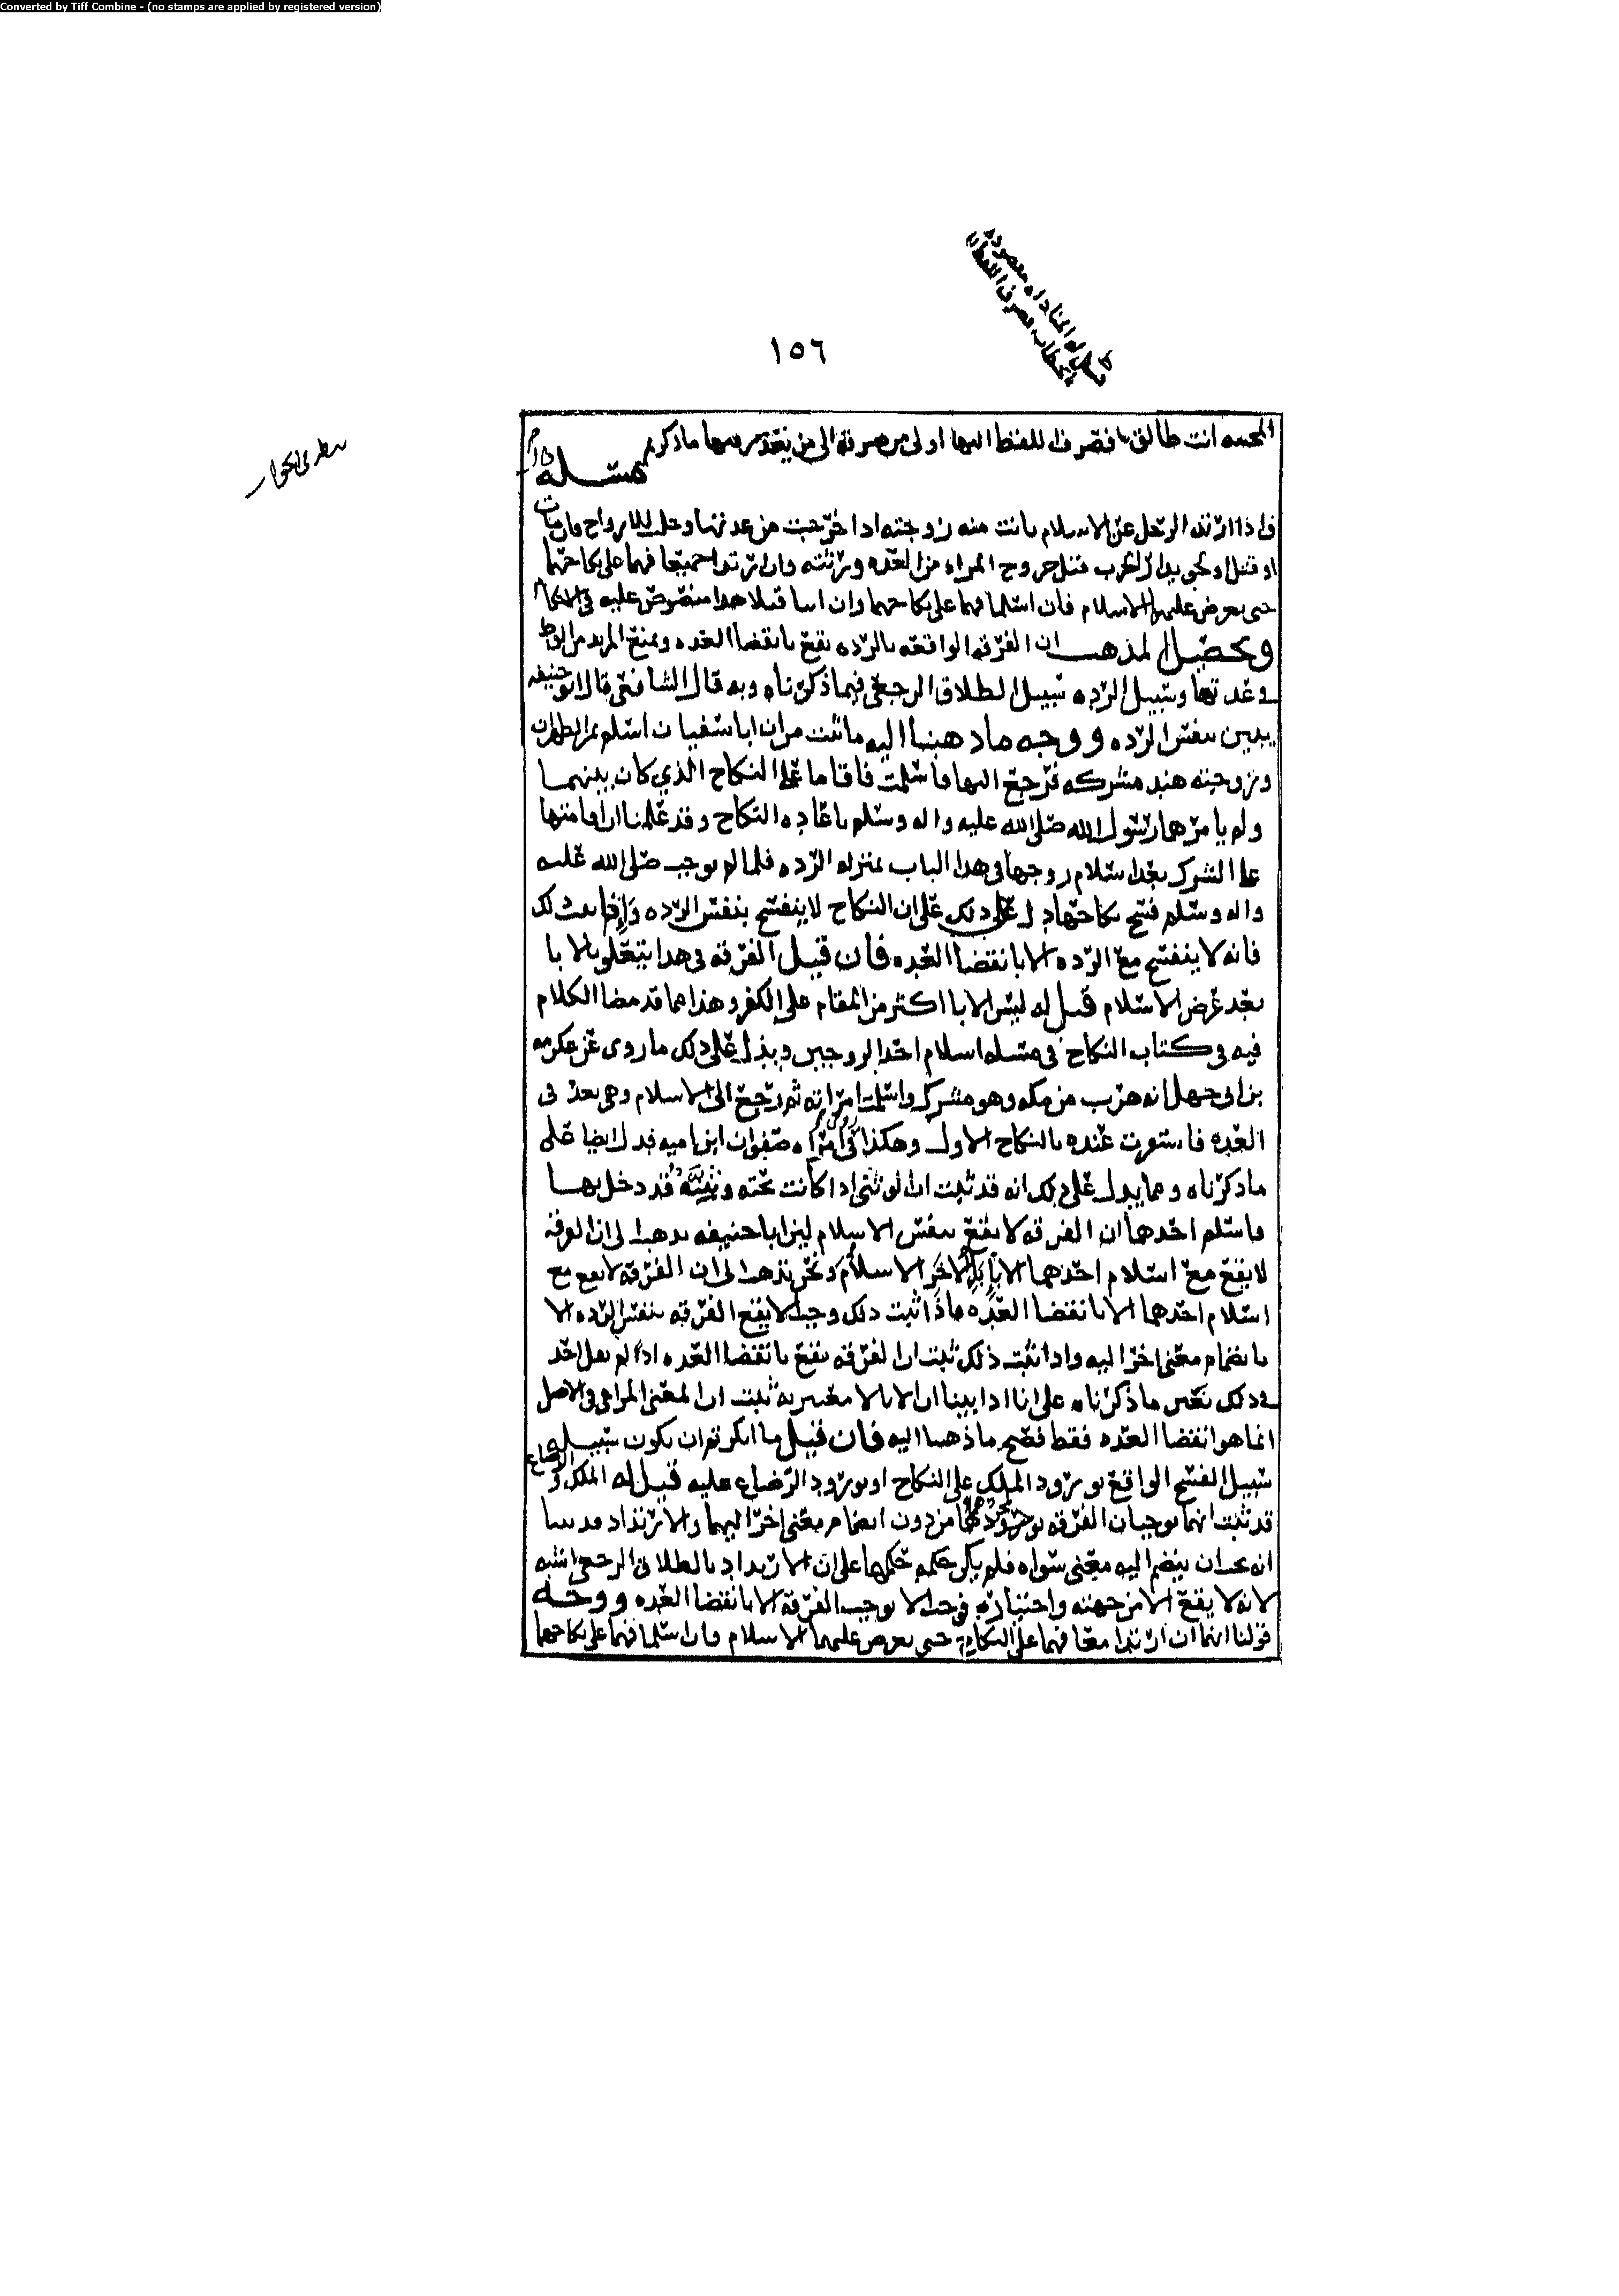 Converted by Tiff Combine - (no stamps are applied by registered version)
١٥٦
انت طالق فصرف اللفظ اليها اولى من صرفه الى من ما ذكرتم
مسله
فاذا ارتد الرجل عن الاسلام بانت منه زوجته اذا خرجت من عدتها وحلت للازواج فان مات
او قتل او لحق بدار الحرب قبل خروج المراه من العده ورثته وان ارتدا جميعا فهما على نكاحهما
حتى يعرض عليهما الاسلام فان اسلما فهما على نكاحهما وان ابيا قتلا هذا منصوص عليه في الاحكام
وتحصيل المذهب ان الفرقه الواقعه بالرده تقع بانقضا العده ويمنع المرتد من الوطء
وعدتها وسبيل الرده سبيل الطلاق الرجعي فيما ذكرناه وبه قال الشافعي قال ابو حنيفه
تبين بنفس الرده ووجه ما ذهبنا اليه ما ثبت من ان ابا سفيان اسلم بمر الظهران
وزوجته هند مشركه فرجع اليها فاسلمت فاقاما على النكاح الذي كان بينهما
ولم يامرهما رسول الله صلى الله عليه واله وسلم باعاده النكاح وقد علمنا ان اقامتها
على الشرك بعد اسلام زوجها في هذا الباب بمنزله الرده فلما لم يوجب صلى الله عليه
واله وسلم فسخ نكاحها دل ذلك على ان النكاح لا ينفسخ بنفس الرده واذا ثبت ذلك
فانه لا ينفسخ مع الرده الا بانقضا العده فان قيل الفرقه في هذا تتعلق بالابا
بعد عرض الاسلام قيل له ليس الابا اكثر من المقام على الكفر وهذا مما قد مضا الكلام
فيه في كتاب النكاح في مسله اسلام احد الزوجين ويدل على ذلك ما روى عن عكرمه
بن ابي جهل انه هرب من مكه وهو مشرك واسلمت امراته ثم رجع الى الاسلام وهي بعد في
العده فاستقرت عنده بالنكاح الاول وهكذا روي في امراه صفوان ابن اميه فدل ايضا على
ما ذكرناه ومما يدل على ذلك انه قد ثبت ان الوثني اذا كانت تحته وثنيه قد دخل بها
فاسلم احدهما ان الفرقه لا تقع بنفس الاسلام لان ابا حنيفه يذهب الى ان الفرقه
لا تقع مع اسلام احدهما الا بابا الاخر الاسلام ونحن نذهب الى ان الفرقه لا تقع مع
اسلام احدهما الا بانقضا العده فاذا ثبت ذلك وجب الا يقع الفرقه بنفس الرده الا
بانضمام معنى اخر اليه واذا ثبت ذلك ثبت ان الفرقه تقع بانقضا العده اذ لم يقل احد
في ذلك بغير ما ذكرناه على انا اذا بينا ان الابا لا معتبر به ثبت ان المعنى المراعى في الاصل
انما هو انقضا العده فقط فصح ما ذهبنا اليه فان قيل ما انكرتم ان يكون سبيله
سبيل الفسخ الواقع بورود الملك على النكاح او بورود الرضاع عليه قيل له الملك والرضاع
قد ثبت انهما يوجبان الفرقه من دون انضمام معنى اخر اليهما والارتداد قد بينا
انه يجب ان ينضم اليه معنى سواه فلم يكن حكمه حكمهما على ان الارتداد بالطلاق الرجعي اشبه
لانه لا يقع الا من جهته واختياره فوجب الا يوجب الفرقه الا بانقضا العده ووجه
قولنا انهما ان ارتدا معا فهما على النكاح حتى يعرض عليهما الاسلام فان اسلما فهما على نكاحهما